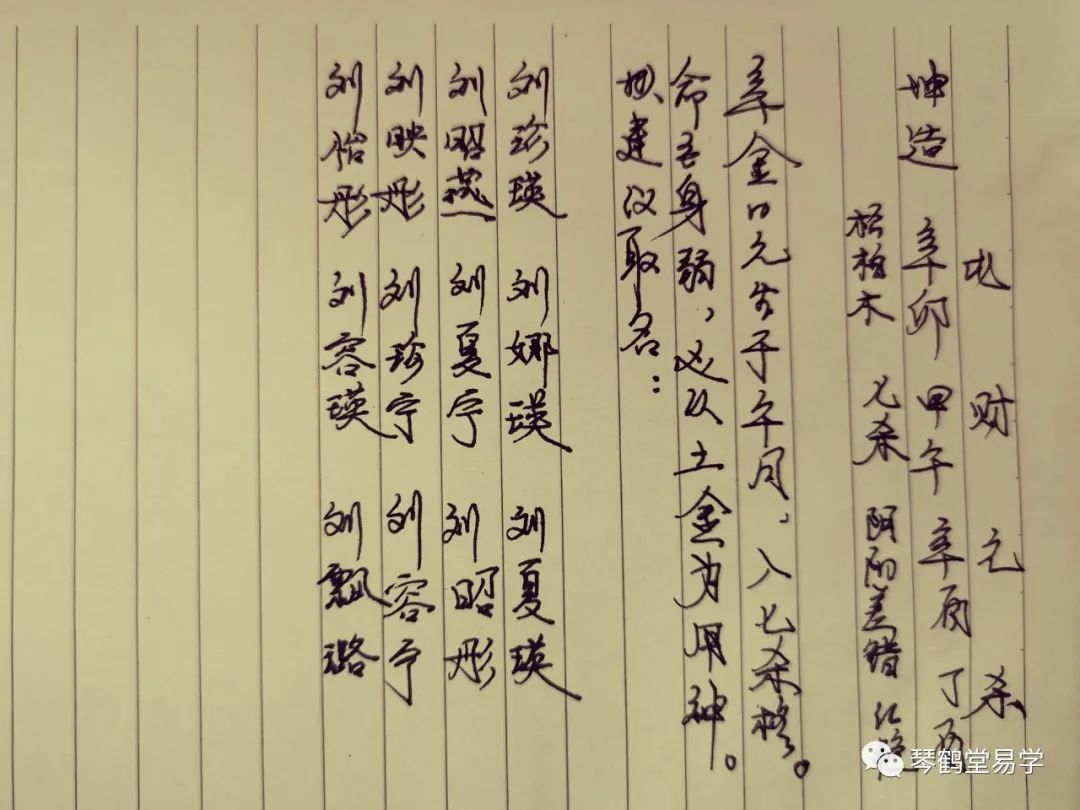 比 财 元 杀
坤造 辛卯 甲午 辛酉 丁酉
松柏木 七杀 阴阳差错
辛金日元生于午月，入七杀格。
命主身弱，必以土金为用神。
建议取名：
刘珍瑛 刘娜瑛 刘夏瑛
刘昭燕 刘夏宁 刘昭彤
刘映彤 刘珍宁 刘容宁
刘怡彤 刘容瑛 刘飘璐
琴鹤堂易学